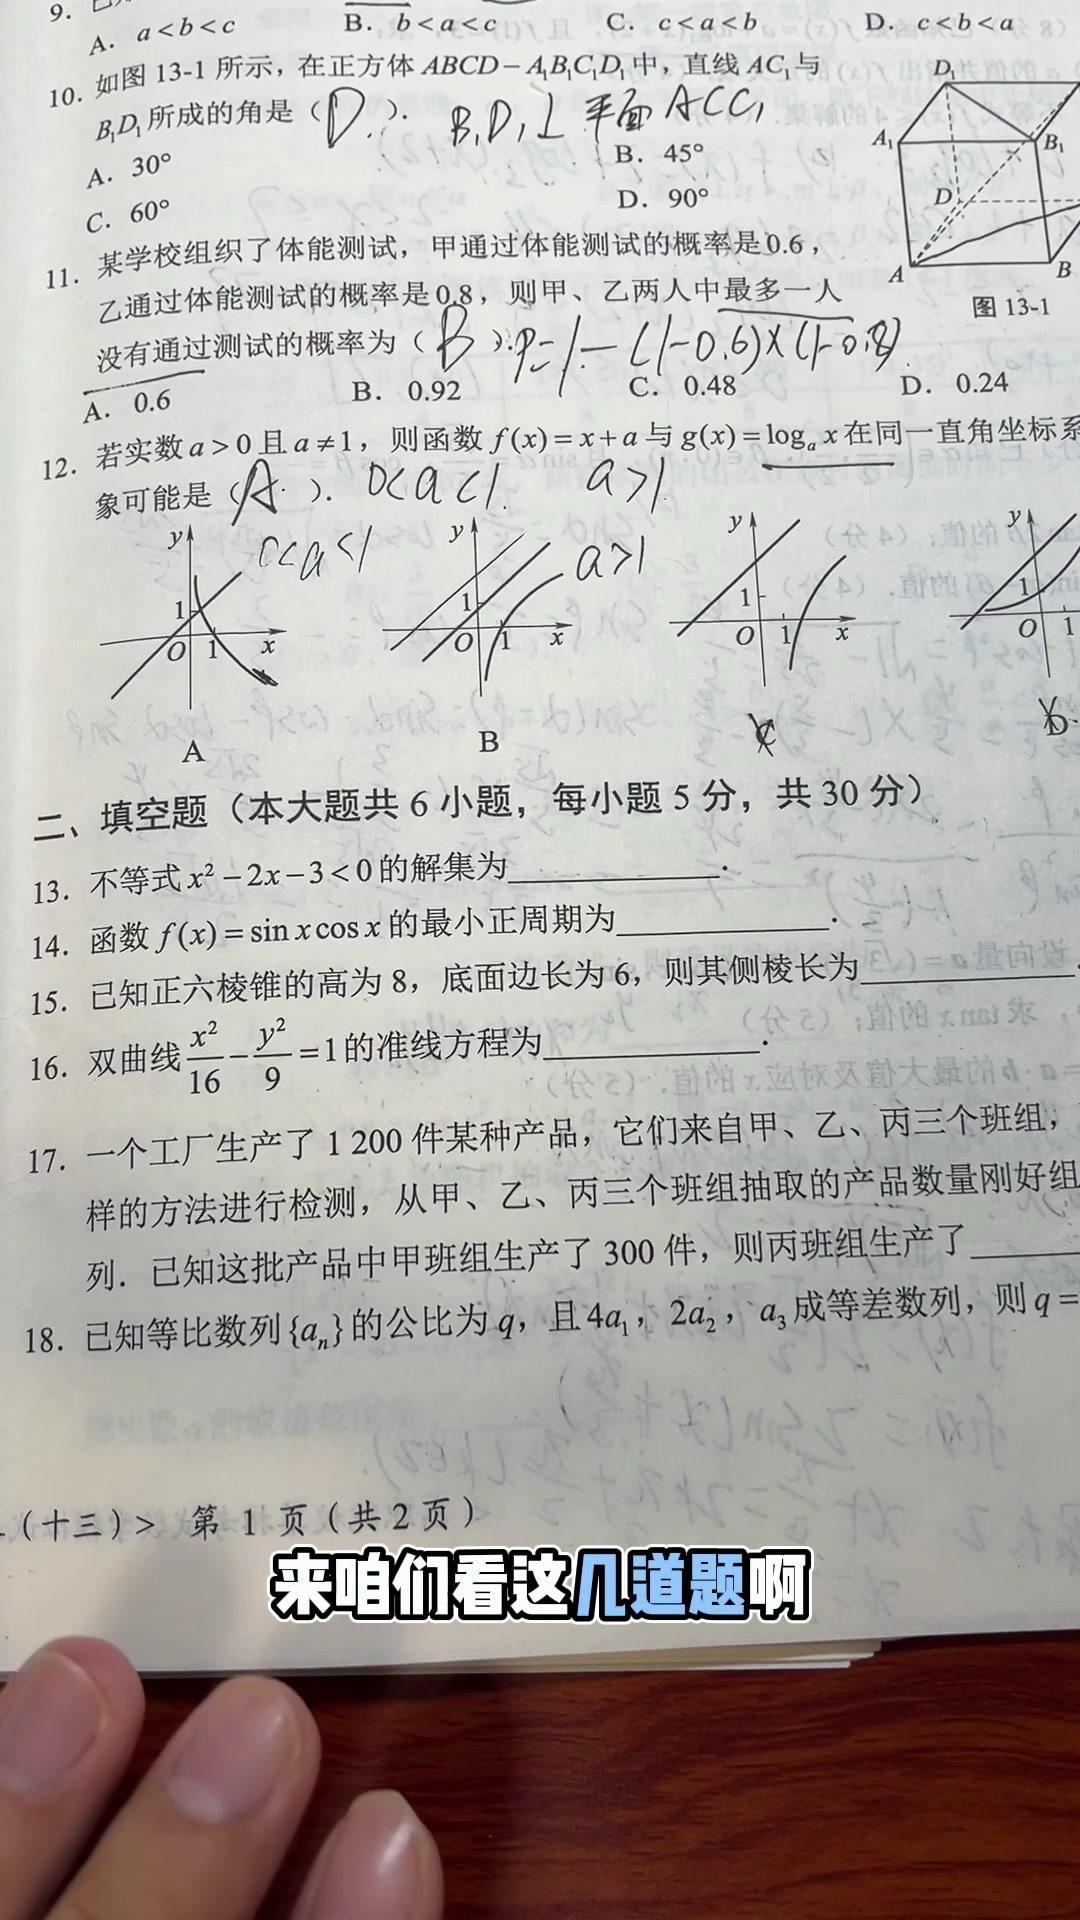 9.
A. a<b<c B. b<a<c C. c<a<b D. c<b<a
10. 如图 13-1 所示，在正方体 ABCD－A₁B₁C₁D₁中，直线 AC₁与
B₁D₁所成的角是（D.）. B₁D₁⊥平面ACC₁
A. 30° B. 45°
C. 60° D. 90°
D₁
A₁ B₁
D
A B
图 13-1
11. 某学校组织了体能测试，甲通过体能测试的概率是0.6，
乙通过体能测试的概率是0.8，则甲、乙两人中最多一人
没有通过测试的概率为（B）. P=1-(1-0.6)×(1-0.8)
A. 0.6 B. 0.92 C. 0.48 D. 0.24
12. 若实数 a>0 且 a≠1，则函数 f(x)=x+a 与 g(x)=logₐx 在同一直角坐标系
象可能是（A.）. 0<a<1. a>1.
y 0<a<1 y a>1 y y
1 1 1 1
O 1 x O 1 x O 1 x O 1
A B C D
二、填空题（本大题共 6 小题，每小题 5 分，共 30 分）
13. 不等式 x²－2x－3<0 的解集为________.
14. 函数 f(x)=sin x cos x 的最小正周期为________.
15. 已知正六棱锥的高为 8，底面边长为 6，则其侧棱长为________.
16. 双曲线 x²/16－y²/9=1 的准线方程为________.
17. 一个工厂生产了 1 200 件某种产品，它们来自甲、乙、丙三个班组，
样的方法进行检测，从甲、乙、丙三个班组抽取的产品数量刚好组
列．已知这批产品中甲班组生产了 300 件，则丙班组生产了____
18. 已知等比数列{aₙ}的公比为 q，且 4a₁，2a₂，a₃成等差数列，则 q=
（十三）> 第 1 页（共 2 页）
来咱们看这几道题啊